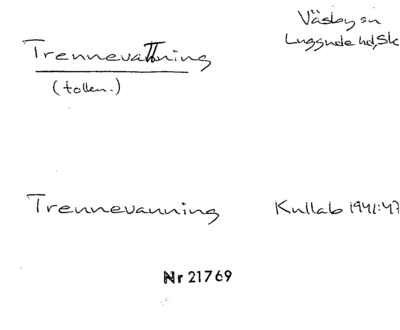 Väsby sn
Luggude hd, Sk
Trennevattning
(tolkn.)
Trennevanning
Kullab 1941:47
Nr 21769